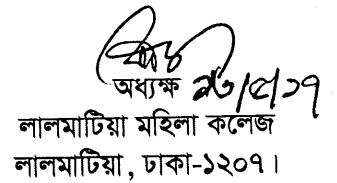 অধ্যক্ষ
লালমাটিয়া মহিলা কলেজ
লালমাটিয়া, ঢাকা-১২০৭।